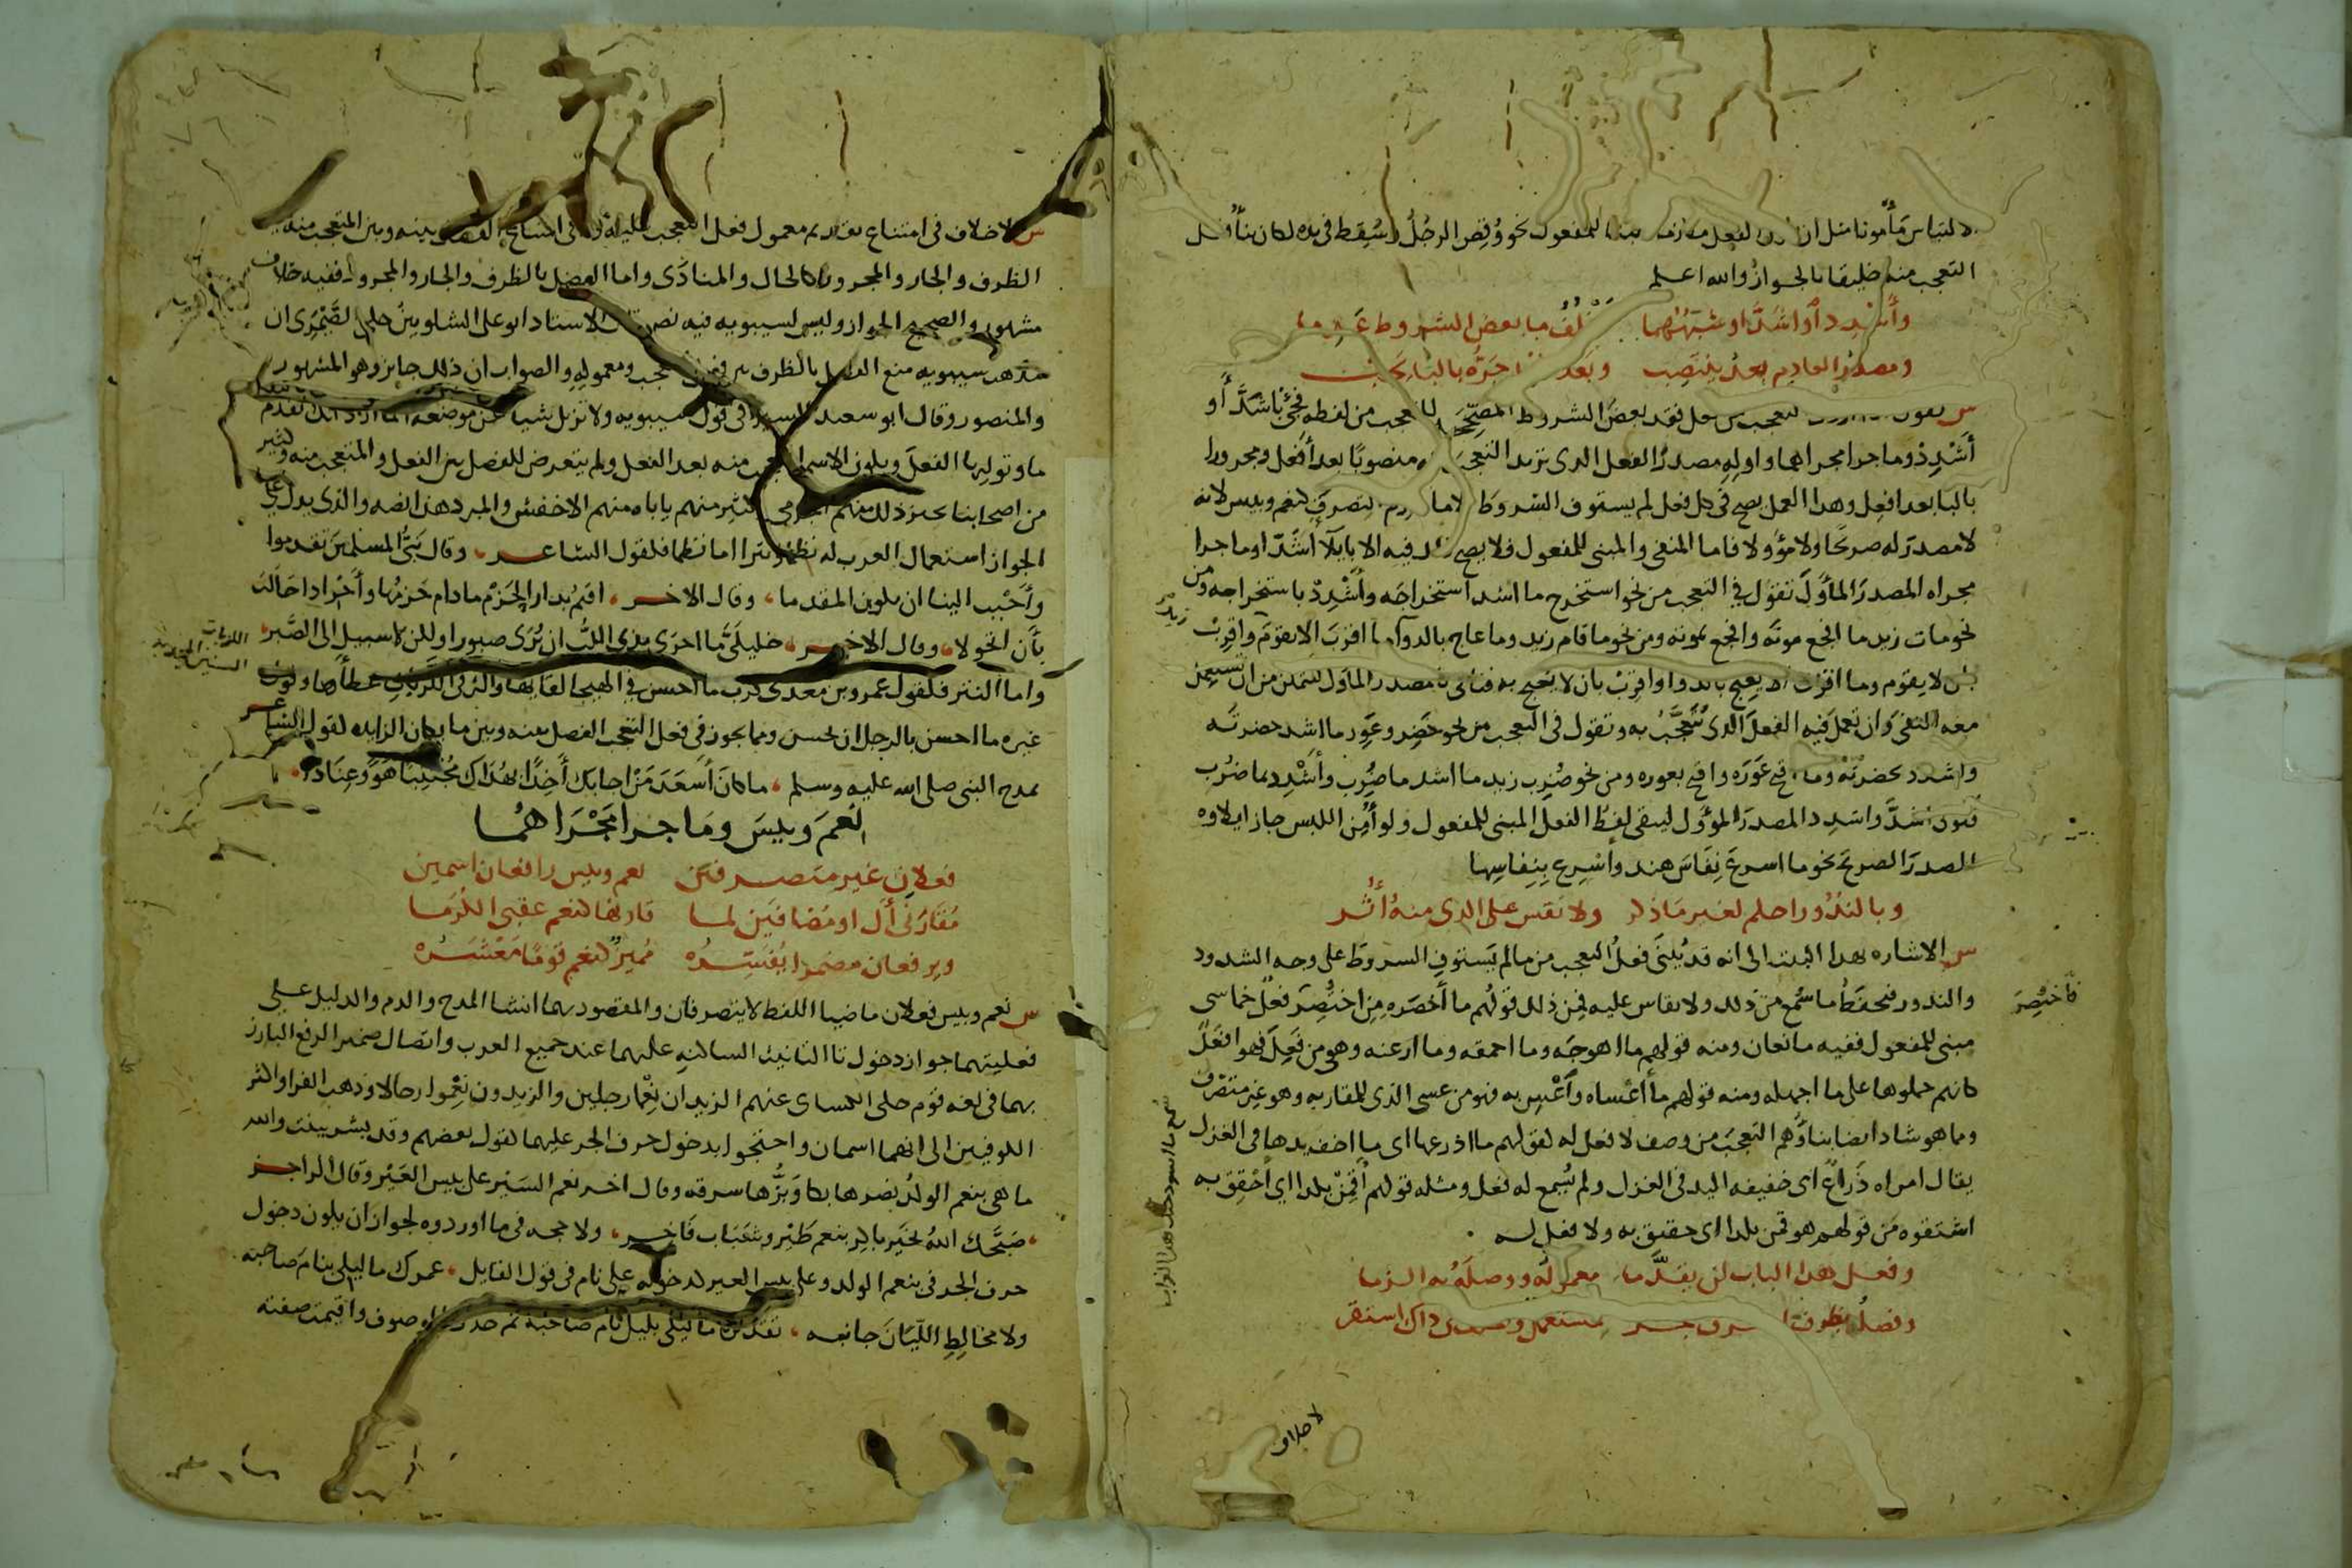 الالباس مأمونا مثل ان الفعل ملازما بنا المفعول نحو وقص الرجل وسقط في يده لكان بناء فعل
التعجب منه خليقا بالجواز والله اعلم
وأشدد أو أشد او شبههما يخلف ما بعض الشروط عدما
ومصدر العادم بعد ينتصب وبعد جره بالبا يجب
س تقول التعجب من فعل فقد بعض الشروط المصححة للتعجب من لفظه فجئ بأشد أو
أشدد وما جرا مجراهما واوله مصدر الفعل الذي تريد التعجب منه منصوبا بعد أفعل ومجرورا
بالبا بعد افعل وهذا العمل يصح في كل فعل لم يستوف الشروط الا ما عدم التصرف كنعم وبيس لانه
لا مصدر له صريحا ولا مؤولا فاما المنفي والمبني للمفعول فلا يصح ذلك فيه الا بايلآء أشد او ما جرا
مجراه المصدر المأول تقول في التعجب من نحو استخرج ما اشد استخراجه وأشدد باستخراجه ومن
نحو مات زيد ما افجع موته وافجع بموته ومن نحو ما قام زيد وما عاج بالدوآء ما اقرب الا يقوم واقرب
بان لا يقوم وما اقرب الا يعيج بالدوا واقرب بان لا يعيج به فتاتي بمصدر المأول لتتمكن من ان تستعمل
معه النفي وان تعمل فيه الفعل الذي تتعجب به وتقول في التعجب من نحو خضر وعور ما اشد خضرته
واشدد بخضرته وما اقبح عوره واقبح بعوره ومن نحو ضرب زيد ما اشد ما ضرب وأشدد بما ضرب
فتولي أشد واشدد المصدر المؤول ليبقى لفظ الفعل المبني للمفعول ولو أمن اللبس جاز ايلاوه
المصدر الصريح نحو ما اسرع نفاس هند وأسرع بنفاسها
وبالندور احكم لغير ما ذكر ولا تقس على الذي منه أثر
س الاشاره بهذا البيت الى انه قد يبنى فعل التعجب من ما لم يستوف الشروط على وجه الشذوذ
والندور فيحفظ ما سمع من ذلك ولا يقاس عليه فمن ذلك قولهم ما أخصره من اختصر فعل خماسي
فاختصر
مبني للمفعول ففيه مانعان ومنه قولهم ما اهوجه وما احمقه وما ارعنه وهي من فعل فهو افعل
كانهم حملوها على ما اجهله ومنه قولهم ما أعساه وأعس به فهو من عسى الذي للمقاربه وهو غير متصرف
ومما هو شاذ ايضا بناؤهم التعجب من وصف لا فعل له كقولهم ما اذرعها اى ما اخف يدها في الغزل
يقال امراه ذراع اى خفيفه اليد في الغزل ولم يسمع له فعل ومثله قولهم أقمن بكذا اي أحقق به
اشتقوه من قولهم هو قمن بكذا اى حقيق به ولا فعل له
وفعل هذا الباب لن يقدما معموله ووصله به الزما
وفصله بظرف او بحرف جر مستعمل والخلف في ذاك استقر
لا خلاف
س لا خلاف في امتناع تقديم معمول فعل التعجب عليه ولا في امتناع الفصل بينه وبين المتعجب منه بغير
الظرف والجار والمجرور كالحال والمنادى واما الفصل بالظرف والجار والمجرور ففيه خلاف
مشهور والصحيح الجواز وليس لسيبويه فيه نص قال الاستاذ ابو على الشلوبين حكى الصيمرى ان
مذهب سيبويه منع الفصل بالظرف بين فعل التعجب ومعموله والصواب ان ذلك جايز وهو المشهور
والمنصور وقال ابو سعيد السيرافي قول سيبويه ولا تزيل شيا عن موضعه انما اراد انك تقدم
ما وتوليها الفعل ويكون الاسم المتعجب منه بعد الفعل ولم يتعرض للفصل بين الفعل والمتعجب منه وكثير
من اصحابنا يجيز ذلك منهم الجرمي وكثير منهم ياباه منهم الاخفش والمبرد هذا نصه والذي يدل على
الجواز استعمال العرب له نظما ونثرا اما نظما فكقول الشاعر وقال نبي المسلمين تقدموا
وأحبب الينا ان يكون المقدما وقال الاخر اقيم بدار الحزم ما دام حزمها وأحر اذا حالت
بأن اتحولا وقال الاخر خليلي ما احرى بذي اللب ان يرى صبورا ولكن لا سبيل الى الصبر
واما النثر فكقول عمرو بن معدي كرب ما احسن في الهيجا لقاءها واكثر في اللزبات عطاءها وقول
غيره ما احسن بالرجل ان يحسن ومما يجوز في فعل التعجب الفصل بينه وبين ما بكان الزايده كقول الشاعر
يمدح النبي صلى الله عليه وسلم ما كان أسعد من اجابك آخذا بهداك مجتنبا هوى وعنادا
نعم وبيس وما جرا مجراهما
فعلان غير متصرفين نعم وبيس رافعان اسمين
مقارني أل او مضافين لما قارنها كنعم عقبى الكرما
ويرفعان مضمرا يفسره مميز كنعم قوما معشره
س نعم وبيس فعلان ماضيا اللفظ لا يتصرفان والمقصود بهما انشا المدح والذم والدليل على
فعليتهما جواز دخول تا التانيث الساكنه عليهما عند جميع العرب واتصال ضمير الرفع البارز
بهما في لغه قوم حكى الكساى عنهم الزيدان نعما رجلين والزيدون نعموا رجالا وذهب الفرا واكثر
الكوفيين الى انهما اسمان واحتجوا بدخول حرف الجر عليهما كقول بعضهم وقد بشر ببنت والله
ما هي بنعم الولد نصرها بكا وبرها سرقه وقال اخر نعم السير على بيس العير وقال الراجز
صبحك الله بخير باكر بنعم طير وشباب فاخر ولا حجه في ما اوردوه لجواز ان يكون دخول
حرف الجر في بنعم الولد وعلى بيس العير كدخوله على نام في قول القايل عمرك ما ليلى بنام صاحبه
ولا مخالط الليان جانبه تقديره ما ليلى بليل نام صاحبه ثم حذف الموصوف واقيمت صفته